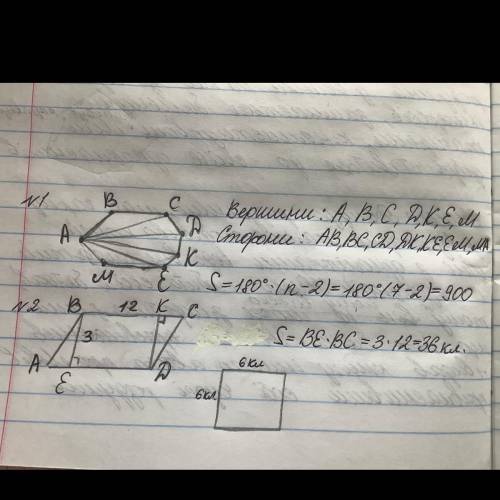 №1
B C
A Д
K
M E
Вершини: A, B, C, Д, K, E, M
Сторони: AB, BC, CД, ДK, KE, EM, MA
S=180°·(n-2)=180°(7-2)=900
№2
B 12 K C
3
A E Д
S=BE·BC=3·12=36 кл.
6кл
6кл